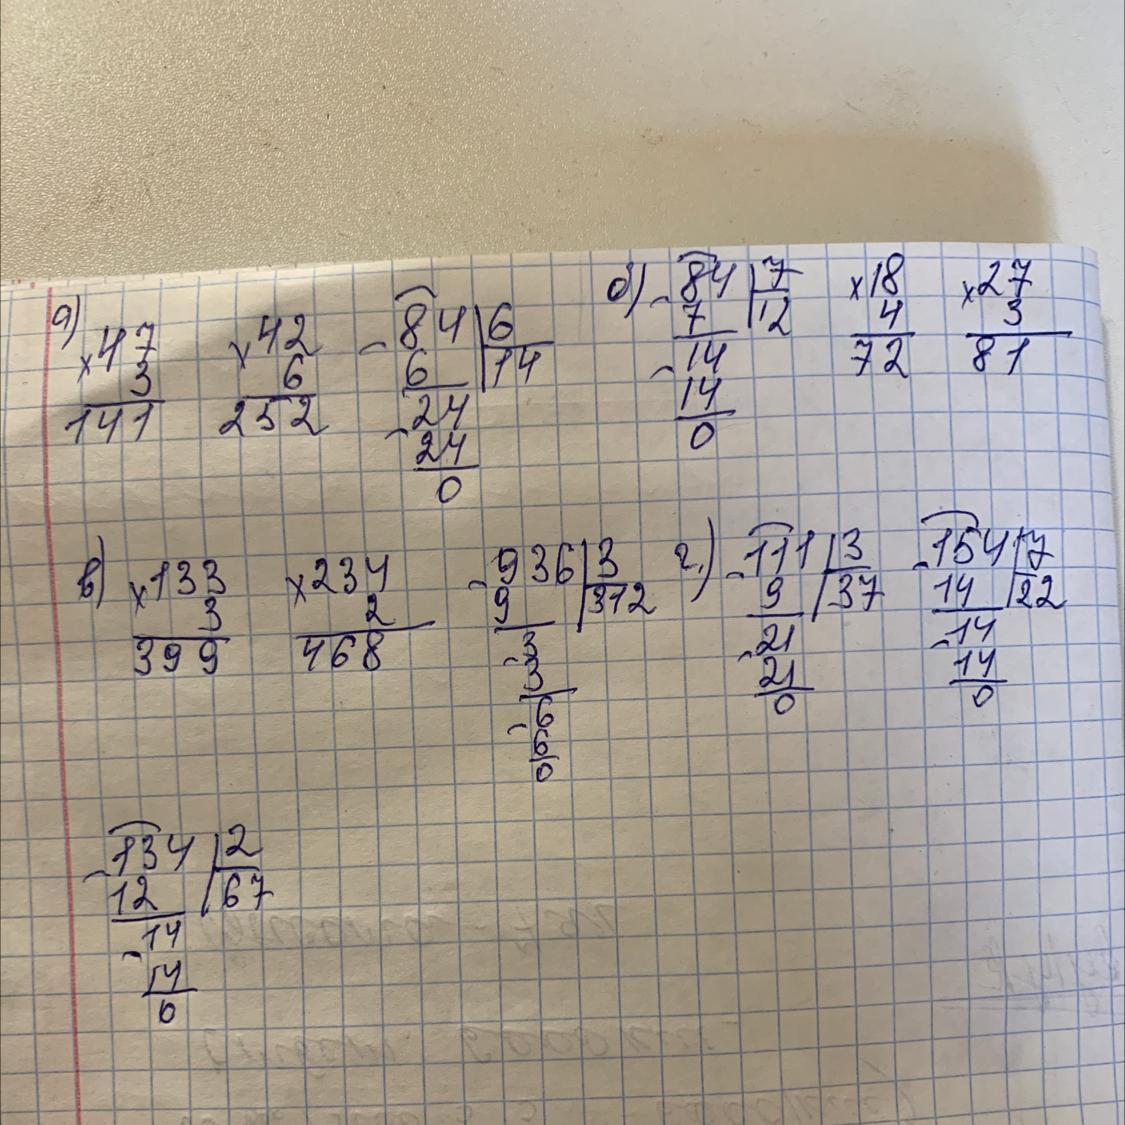 а)
×47
3
141
×42
6
252
-84|6
6 14
-24
24
0
б)
-84|7
7 12
-14
14
0
×18
4
72
×27
3
81
в)
×133
3
399
×234
2
468
-936|3
9 312
-3
3
-6
6
0
г.)
-111|3
9 37
-21
21
0
-154|7
14 22
-14
14
0
-134|2
12 67
-14
14
0